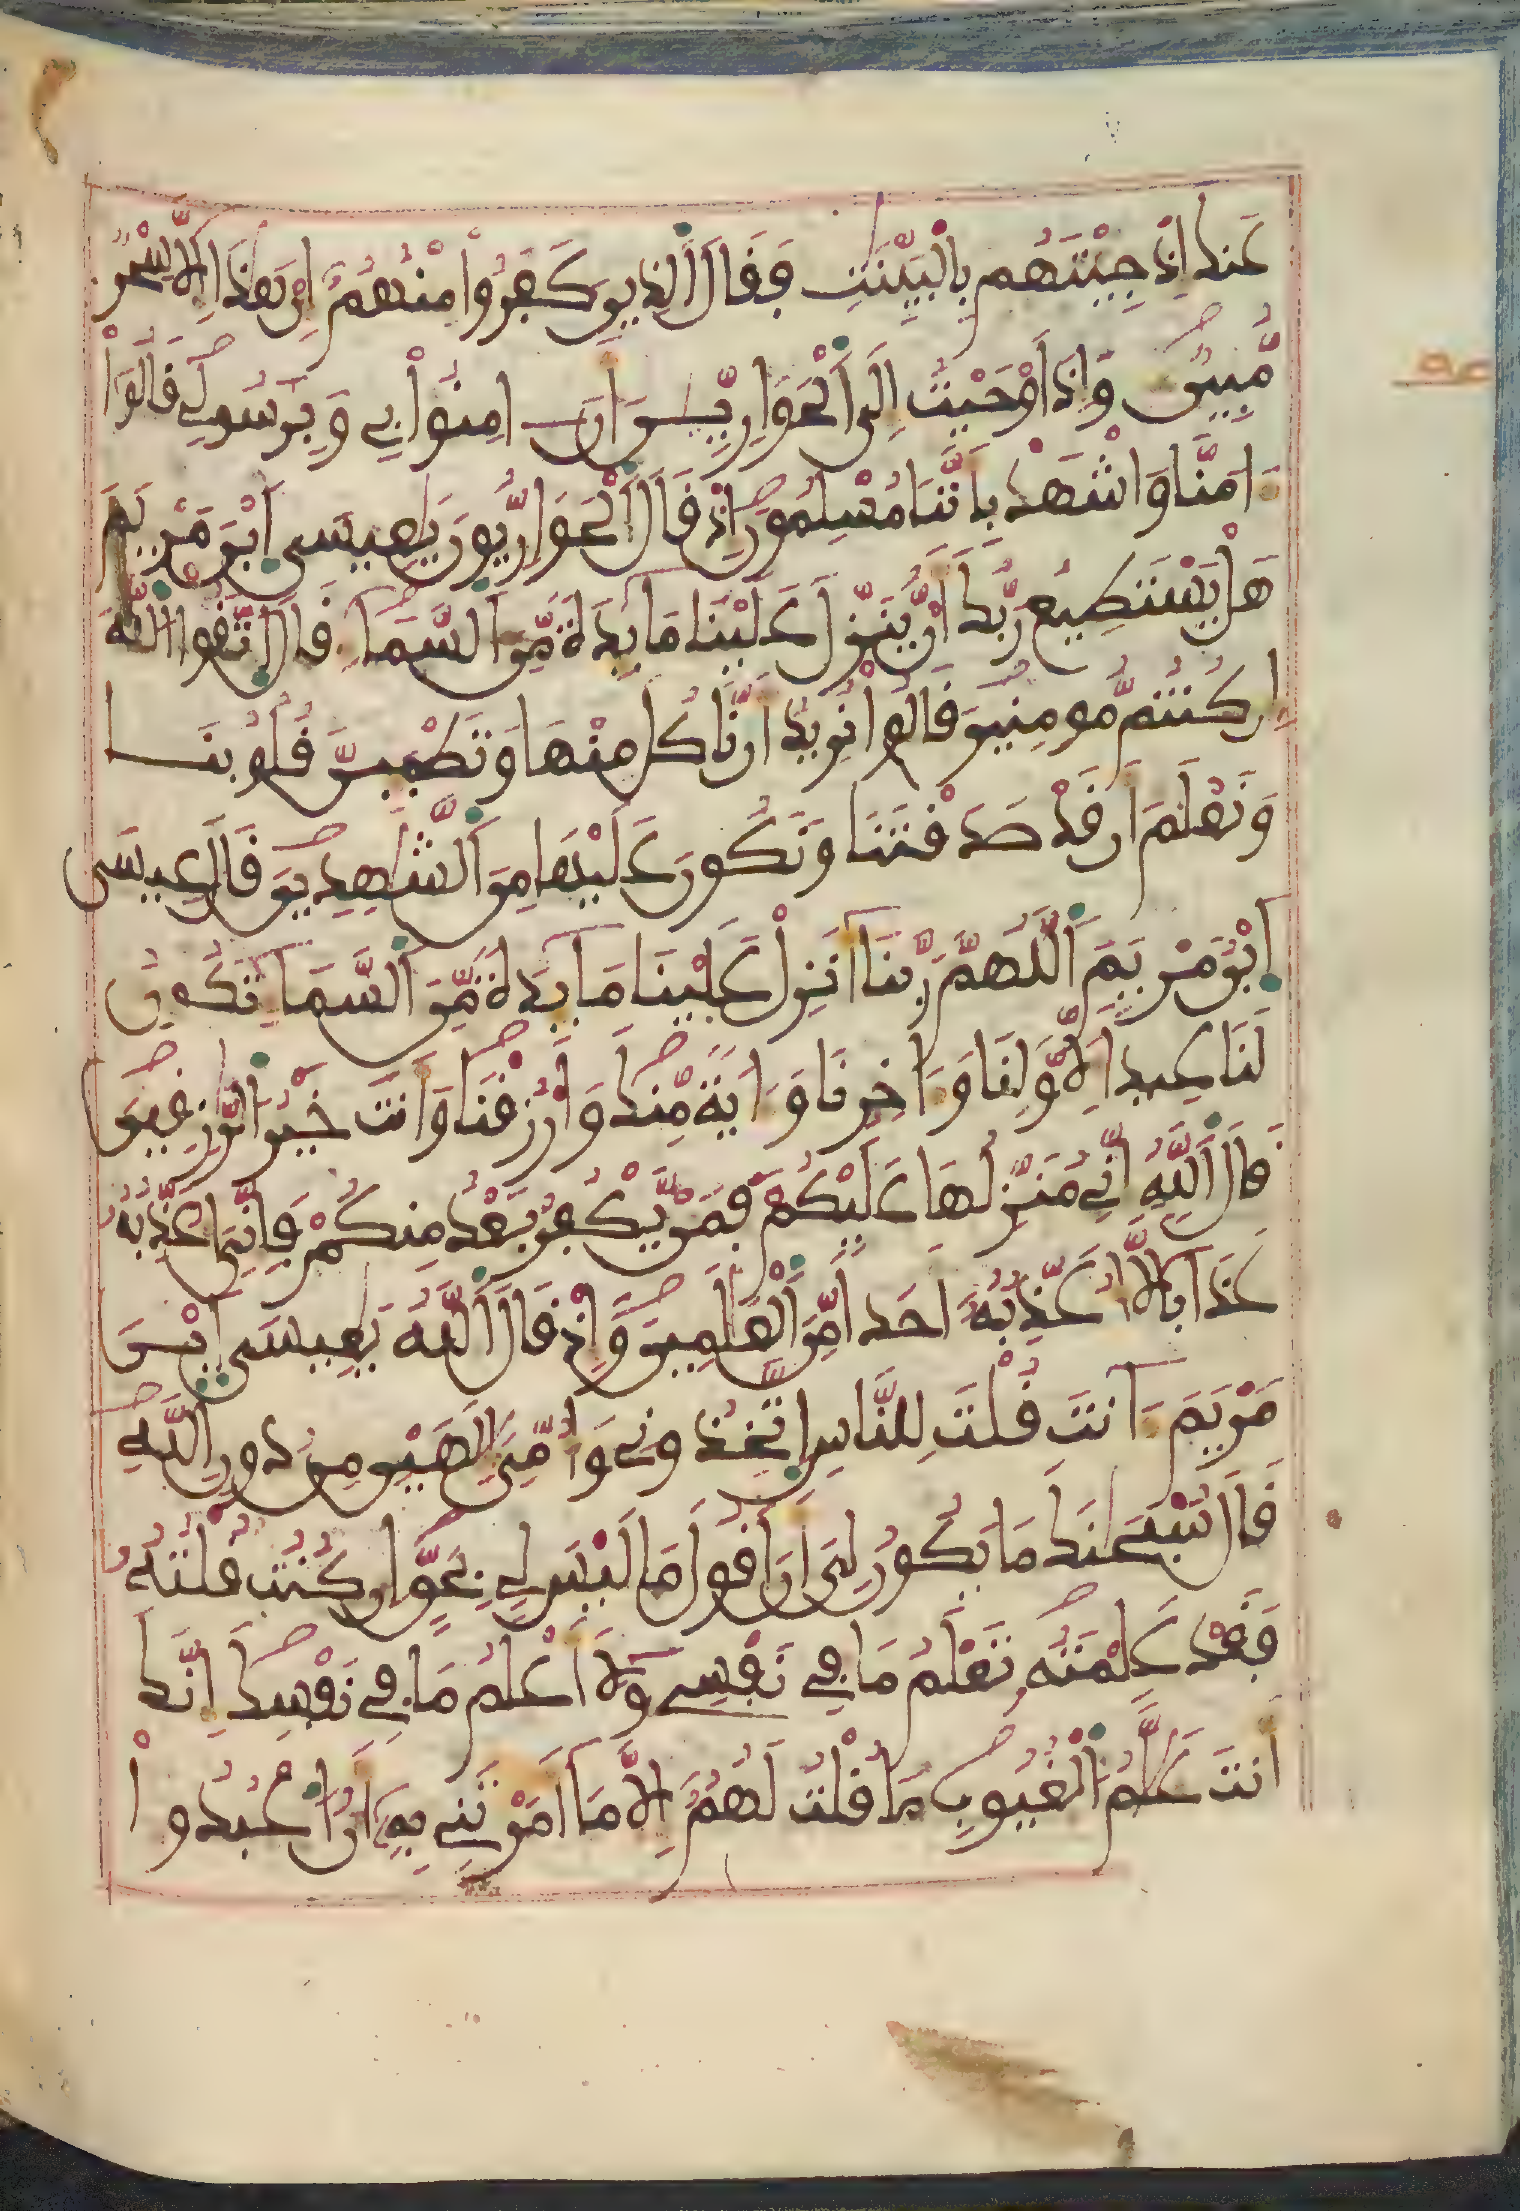 عَنكَ إِذْ جِيْتَهُم بِالْبَيِّنَٰتِ فَقَالَ الَذِينَ كَفَرُواْ مِنْهُمُ إِنْ هَٰذَا إِلَّا سِحْرٌ
مُّبِينٌ وَإِذَ اَوْحَيْتُ إِلَى الْحَوَارِيِّۦنَ أَنَ اٰمِنُواْ بِے وَبِرَسُولِے قَالُوٓاْ
ءَامَنَّا وَاشْهَدْ بِأَنَّنَا مُسْلِمُونَ إِذْ قَالَ الْحَوَارِيُّونَ يَٰعِيسَى اَبْنَ مَرْيَمَ
هَلْ يَسْتَطِيعُ رَبُّكَ أَنْ يُّنَزِّلَ عَلَيْنَا مَآئِدَةً مِّنَ السَّمَآءِ قَالَ اَتَّقُواْ اللَّهَ
إِن كُنتُم مُّومِنِينَ قَالُواْ نُرِيدُ أَن نَّاكُلَ مِنْهَا وَتَطْمَئِنَّ قُلُوبُنَا
وَنَعْلَمَ أَن قَدْ صَدَقْتَنَا وَنَكُونَ عَلَيْهَا مِنَ الشَّٰهِدِينَ قَالَ عِيسَى
اَبْنُ مَرْيَمَ اَللَّهُمَّ رَبَّنَآ أَنزِلْ عَلَيْنَا مَآئِدَةً مِّنَ السَّمَآءِ تَكُونُ
لَنَا عِيداً لِّأَوَّلِنَا وَءَاخِرِنَا وَءَايَةً مِّنكَ وَارْزُقْنَا وَأَنتَ خَيْرُ الرَّٰزِقِينَ
قَالَ اَللَّهُ إِنِّے مُنَزِّلُهَا عَلَيْكُمْ فَمَنْ يَّكْفُرْ بَعْدُ مِنكُمْ فَإِنِّيَ أُعَذِّبُهُۥ
عَذَاباً لَّا أُعَذِّبُهُۥٓ أَحَداً مِّنَ الْعَٰلَمِينَ وَإِذْ قَالَ اَللَّهُ يَٰعِيسَى اَبْنَ
مَرْيَمَ ءَآنتَ قُلْتَ لِلنَّاسِ اِتَّخِذُونِے وَأُمِّيَ إِلَٰهَيْنِ مِن دُونِ اللَّهِ
قَالَ سُبْحَٰنَكَ مَا يَكُونُ لِيَ أَنَ اَقُولَ مَا لَيْسَ لِے بِحَقٍّ إِن كُنتُ قُلْتُهُۥ
فَقَدْ عَلِمْتَهُۥ تَعْلَمُ مَا فِے نَفْسِے وَلَآ أَعْلَمُ مَا فِے نَفْسِكَ إِنَّكَ
أَنتَ عَلَّٰمُ الْغُيُوبِ مَا قُلْتُ لَهُمُۥٓ إِلَّا مَآ أَمَرْتَنِے بِهِۦٓ أَنُ اُعْبُدُواْ